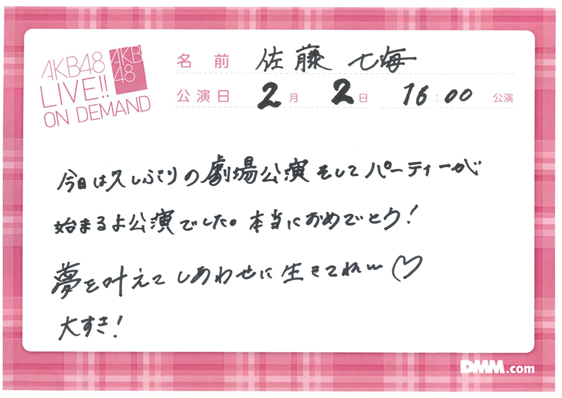 AKB48
LIVE!!
ON DEMAND
AKB
48
名前 佐藤 七海
公演日 2月 2日 16:00 公演
今日は久しぶりの劇場公演そしてパーティーが
始まるよ公演でした。本当におめでとう!
夢を叶えてしあわせに生きてね〜♡
大すき!
DMM.com